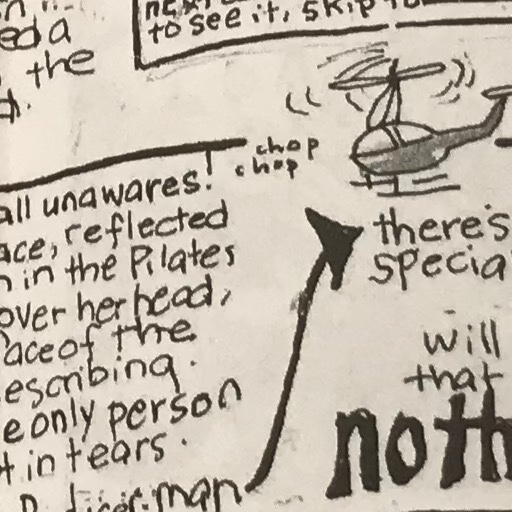 to see it, skip
ed a
the
chop
chop
all unawares!
ace, reflected
in the Pilates
over her head,
ace of the
escribing.
e only person
t in tears.
man
there's
specia
will
that
noth